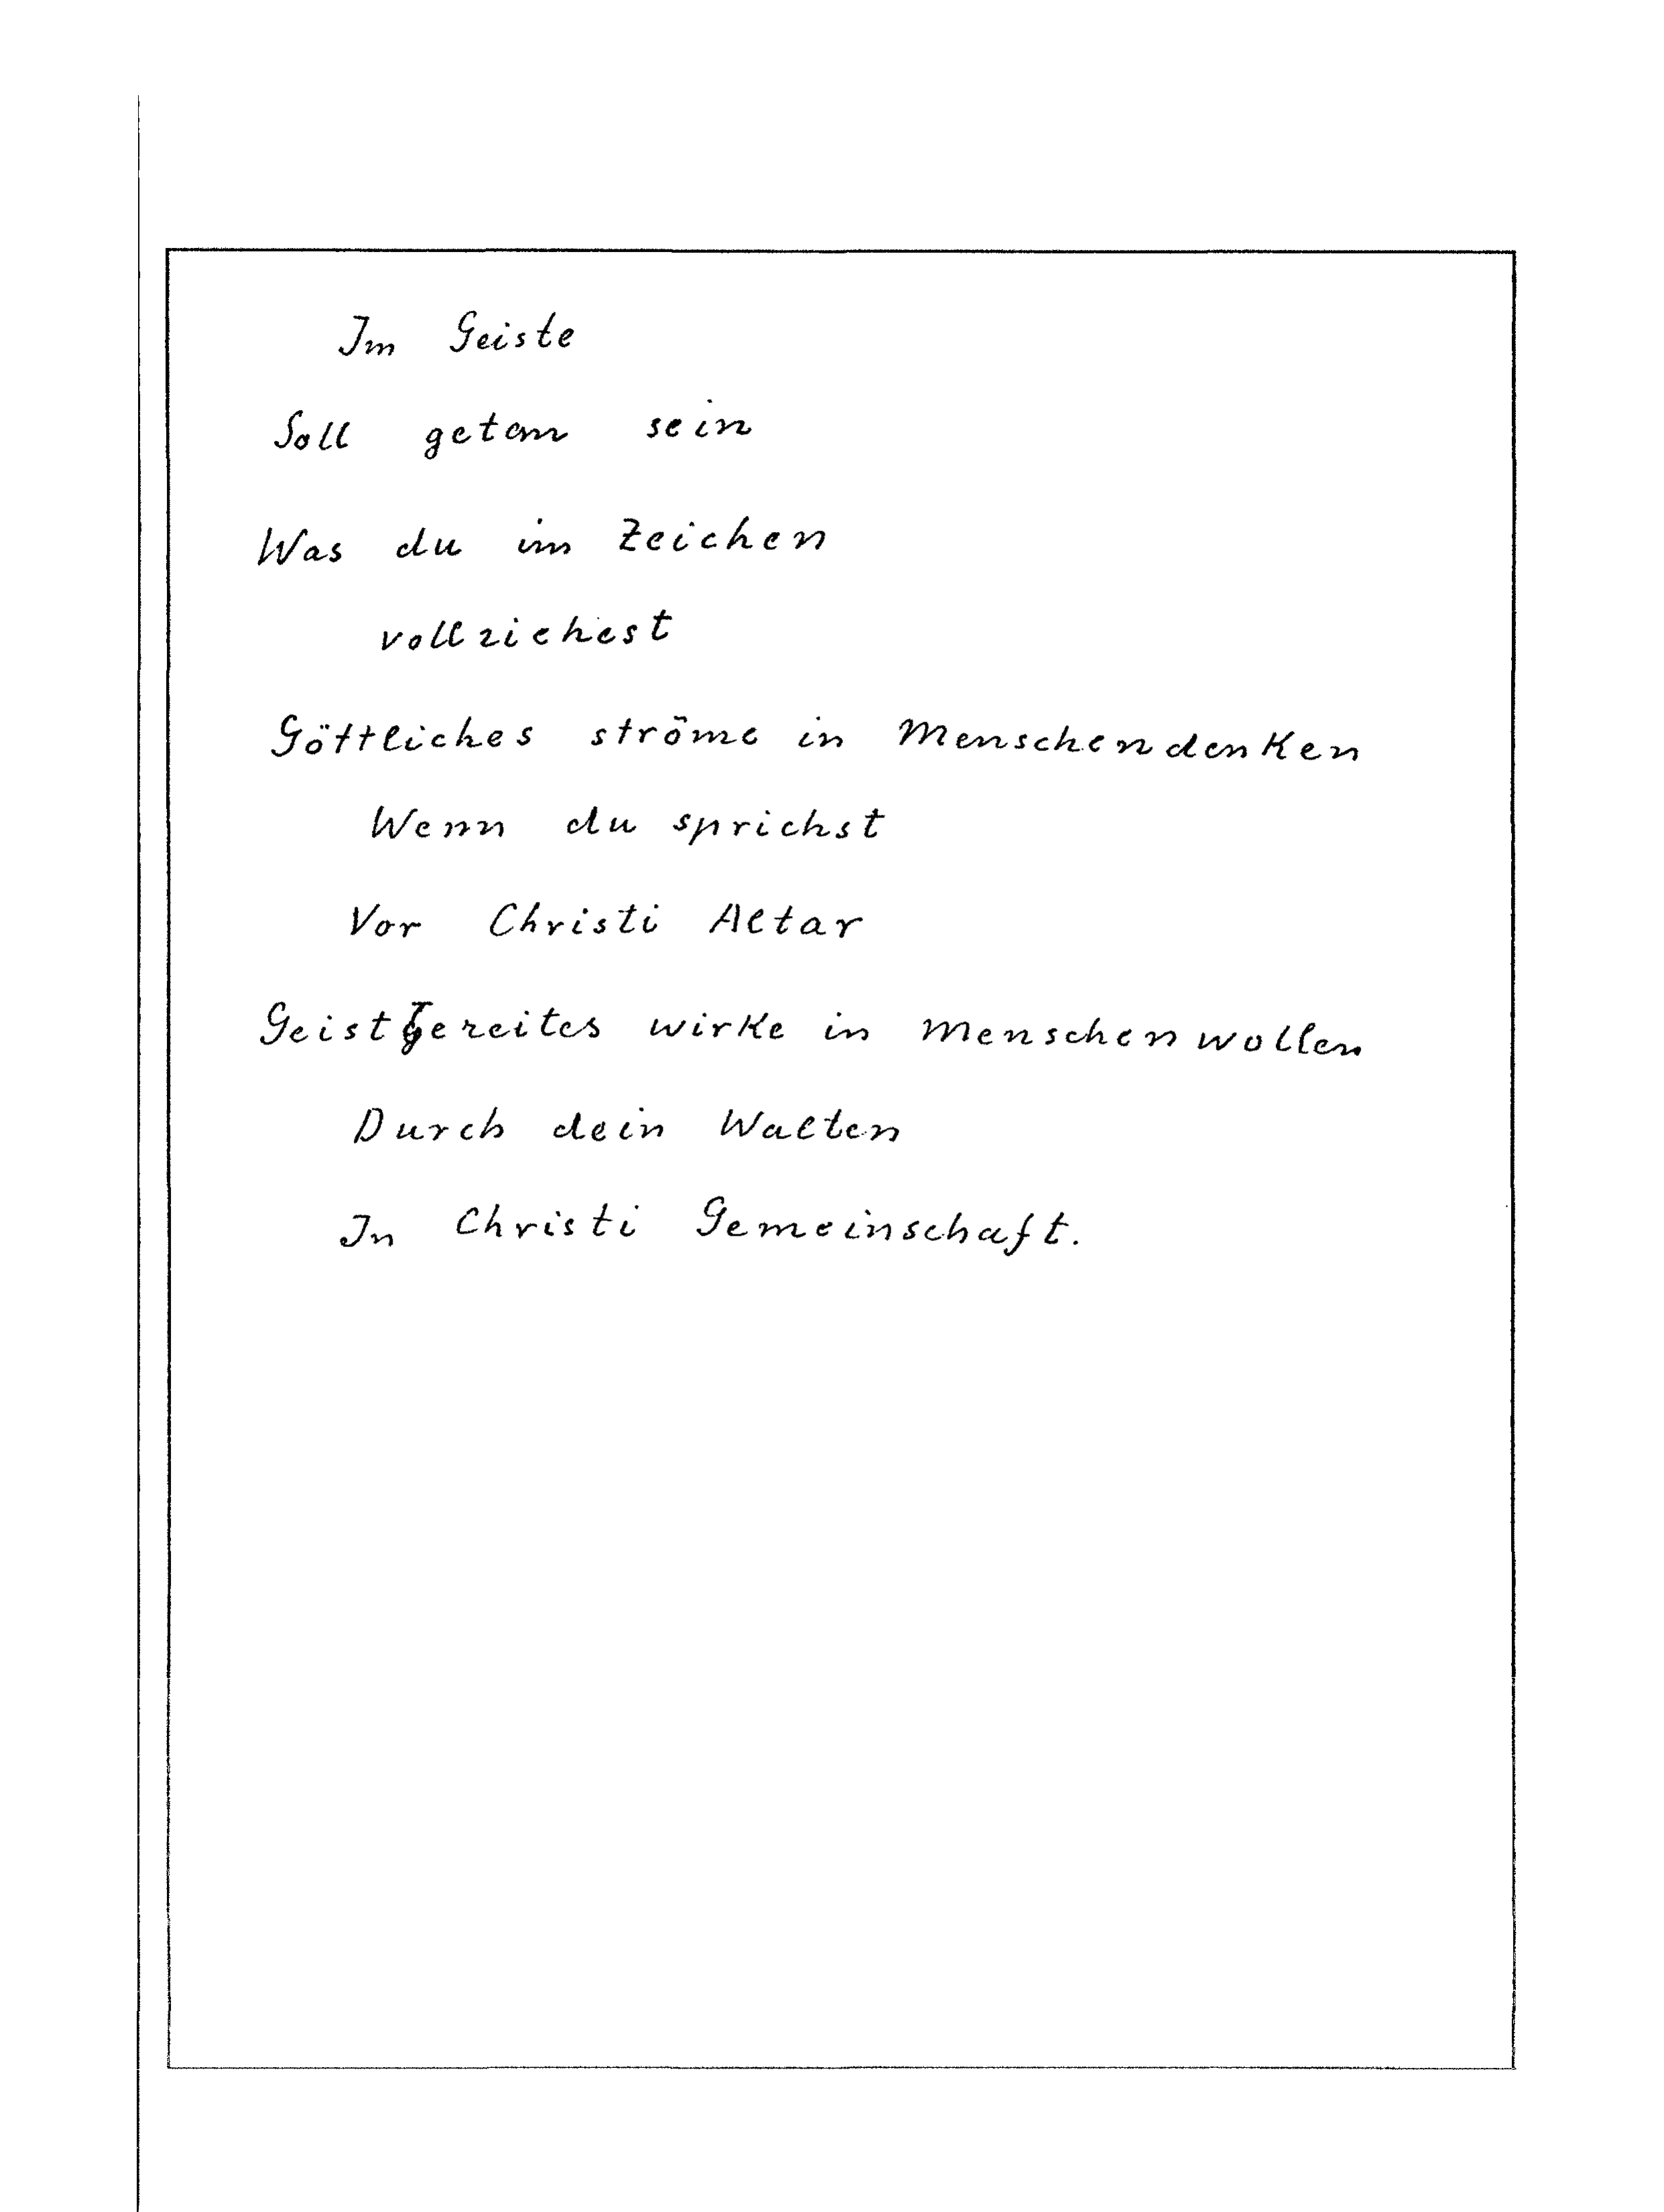 Im Geiste
Soll getan sein
Was du im Zeichen
vollziehest
Göttliches ströme in Menschendenken
Wenn du sprichst
Vor Christi Altar
wirke in Menschenwollen
Durch dein Walten
In Christi Gemeinschaft.